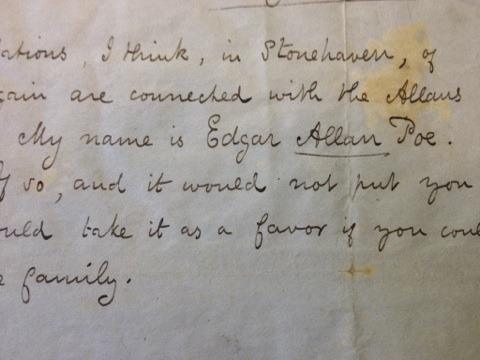 lations, I think, in Stonehaven, of
gain are connected with the Allans
My name is Edgar Allan Poe.
If so, and it would not put you
ould take it as a favor if you coul
e family.